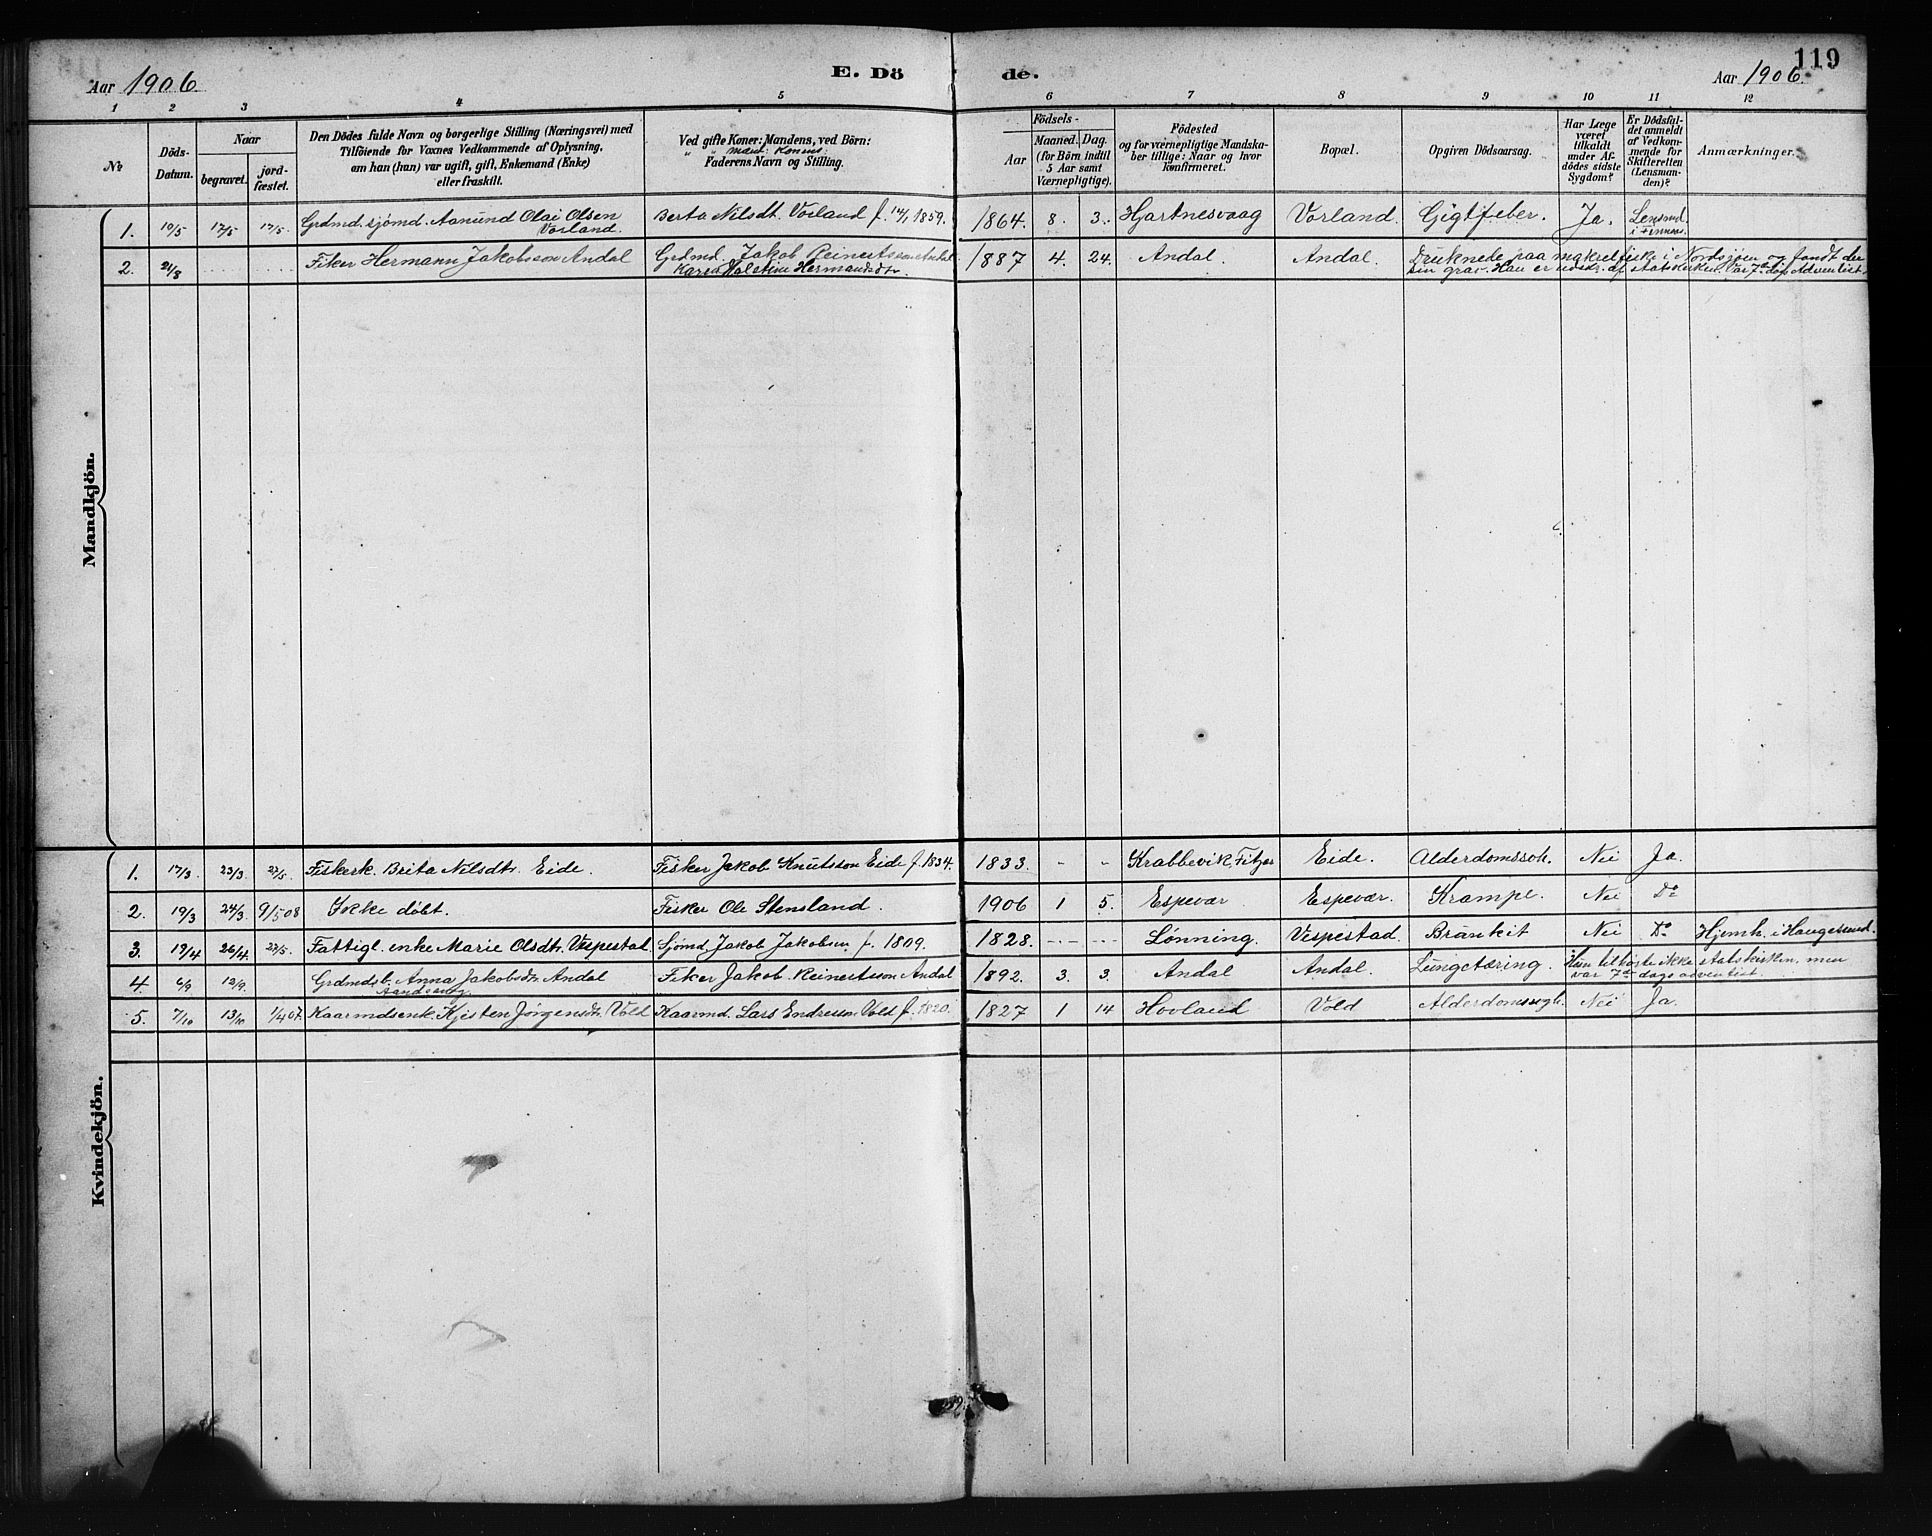 119
Aar 1906. E. Dö de. Aar 1906.
1 2 3 4 5 6 7 8 9 10 11 12
№
Döds-Datum.
Naar
begravet.
jord-fæstet.
Den Dödes fulde Navn og borgerlige Stilling (Næringsvei) med
Tilföiende for Voxnes Vedkommende af Oplysning,
om han (hun) var ugift, gift, Enkemand (Enke)
eller fraskilt.
Ved gifte Koner: Mandens, ved Börn:
" " Mænd: Konens:
Faderens Navn og Stilling.
Födsels-
Aar
Maaned. Dag.
(for Börn indtil
5 Aar samt
Værnepligtige).
Födested
og for værnepligtige Mandska-
ber tillige: Naar og hvor
konfirmeret.
Bopæl.
Opgiven Dödsaarsag.
Har Læge
været
tilkaldt
under Af-
dödes sidste
Sygdom?
Er Dödsfal-
det anmeldt
af Vedkom-
mende for
Skifteretten
(Lensman-
den)?
Anmærkninger.
Mandkjön.
1. 10/5 17/5 17/5. Grdmd. sjömd. Aanund Olai Olsen Vorland. Berta Nilsdt. Vorland f. 14/1 1859. 1864. 8. 3. Hartnesvaag Vorland. Gigtfeber. Ja. Lensmd. i
2. 21/8 Fisker Hermann Jakobsson Andal Grdmd. Jakob Reinertsson Andal
Karen Valstine Hermandsdtr 1887 4. 24. Andal. Andal. Druknede paa makrelfiske i Nordsjøen og fandt der
sin grav. Han er udtr. af statskirken. Var 7de dags Adventist.
Kvindekjön.
1. 17/3 23/3 27/5. Fiskerk. Brita Nilsdtr. Eide. Fisker Jakob Knutsson Eide f. 1834. 1833. - - Krabbevik, Fitjar Eide. Alderdomssvh. Nei Ja.
2. 19/3 24/3. 9/5 08 Ikke døbt. Fisker Ole Stensland. 1906 1 5. Espevær Espevær. Krampe. Nei Do
3. 19/4 26/4. 27/5. Fattigl. enke Marie Olsdtr. Vespestad. Sjömd. Jakob Jakobsen f. 1809. 1828. Lønning. Vespestad. Brankit Nei Do Hjemh. i Haugesund.
4. 6/9 12/9. Grdmdsb. Anna Jakobsdtr. Andal Fisker Jakob Reinertsson Andal 1892. 3. 3. Andal Andal. Lungetæring. Hun tilhørte ikke statskirken, men
var 7de dags adventist.
5. 7/10 13/10 1/4 07. Kaarmdsenk. Kjersten Jørgensdtr. Vold Kaarmd. Lars Endresson Vold f. 1820. 1827 1 14 Hovland Vold Alderdomssvgh. Nei Ja.